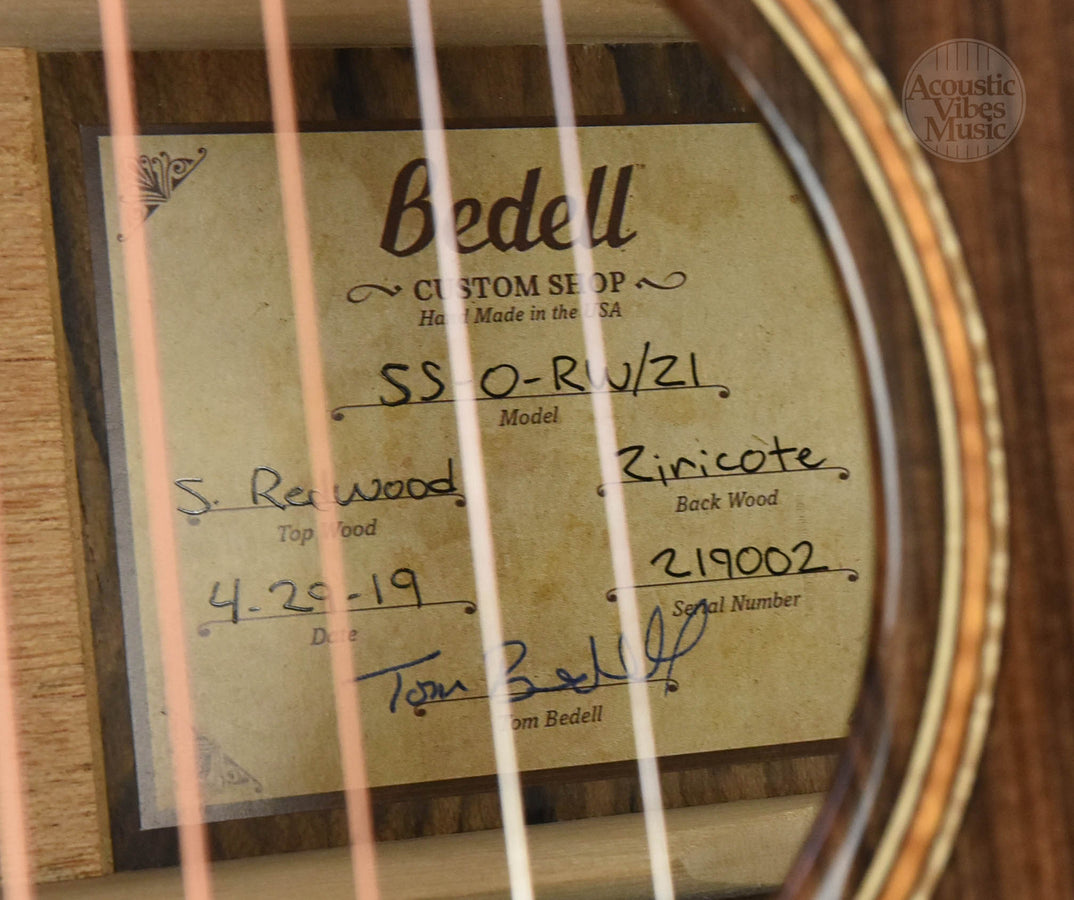 Acoustic
Vibes
Music
Bedell™
CUSTOM SHOP
Hand Made in the USA
SS-O-RW/Z1
Model
S. Redwood
Top Wood
Ziricote
Back Wood
4-29-19
Date
219002
Serial Number
Tom Bedell
Tom Bedell